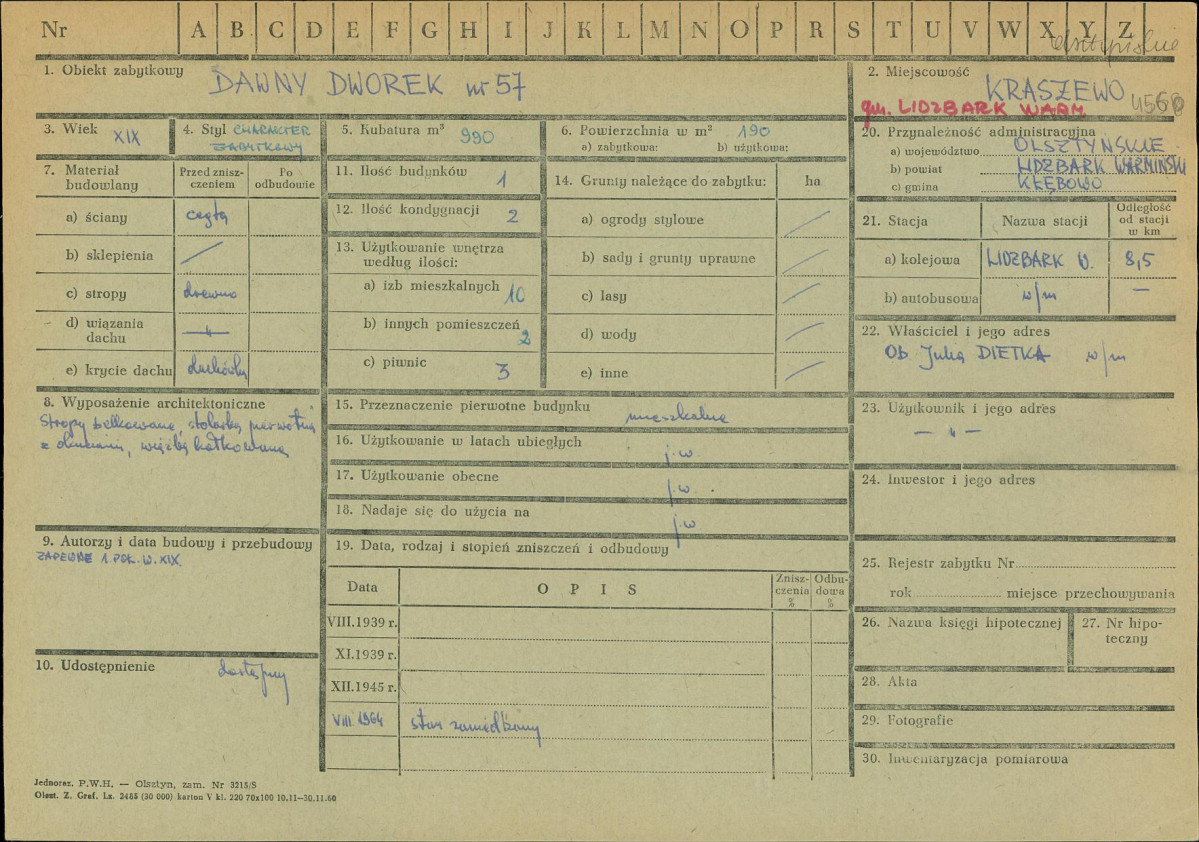 Nr A B C D E F G H I J K L M N O P R S T U V W X Y Z
olsztyńskie
1. Obiekt zabytkowy DAWNY DWOREK nr 57
2. Miejscowość KRASZEWO
gm. LIDZBARK WARM
3. Wiek XIX
4. Styl CHARAKTER ZABYTKOWY
5. Kubatura m³ 990
6. Powierzchnia w m² 190
a) zabytkowa: b) użytkowa:
20. Przynależność administracyjna
a) województwo OLSZTYŃSKIE
b) powiat LIDZBARK WARMIŃSKI
c) gmina KŁĘBOWO
7. Materiał budowlany
Przed znisz-
czeniem
Po
odbudowie
a) ściany cegła
b) sklepienia /
c) stropy drewno
d) wiązania
dachu —"—
e) krycie dachu dachówka
11. Ilość budynków 1
12. Ilość kondygnacji 2
13. Użytkowanie wnętrza
według ilości:
a) izb mieszkalnych 10
b) innych pomieszczeń 2
c) piwnic 3
14. Grunty należące do zabytku: ha
a) ogrody stylowe /
b) sady i grunty uprawne /
c) lasy /
d) wody /
e) inne /
21. Stacja Nazwa stacji
Odległość
od stacji
w km
a) kolejowa LIDZBARK W. 8,5
b) autobusowa w/m —
22. Właściciel i jego adres
Ob Julia DIETKA w/m
8. Wyposażenie architektoniczne
Stropy belkowane, stolarka pierwotna
z okuciami, więźba kołkowana
15. Przeznaczenie pierwotne budynku mieszkalne
16. Użytkowanie w latach ubiegłych j.w.
17. Użytkowanie obecne j.w.
18. Nadaje się do użycia na j.w
23. Użytkownik i jego adres
— " —
24. Inwestor i jego adres
9. Autorzy i data budowy i przebudowy
ZAPEWNE 1. POŁ. W. XIX.
19. Data, rodzaj i stopień zniszczeń i odbudowy
Data O P I S
Znisz-
czenia
%
Odbu-
dowa
%
VIII.1939 r.
XI.1939 r.
XII.1945 r.
VIII.1964 stan zaniedbany
25. Rejestr zabytku Nr
rok miejsce przechowywania
26. Nazwa księgi hipotecznej
27. Nr hipo-
teczny
10. Udostępnienie dostępny
28. Akta
29. Fotografie
30. Inwentaryzacja pomiarowa
Jednoraz. P.W.H. — Olsztyn, zam. Nr 3215/S
Olszt. Z. Graf. Lz. 2485 (30 000) karton V kl. 220 70x100 10.11—30.11.60